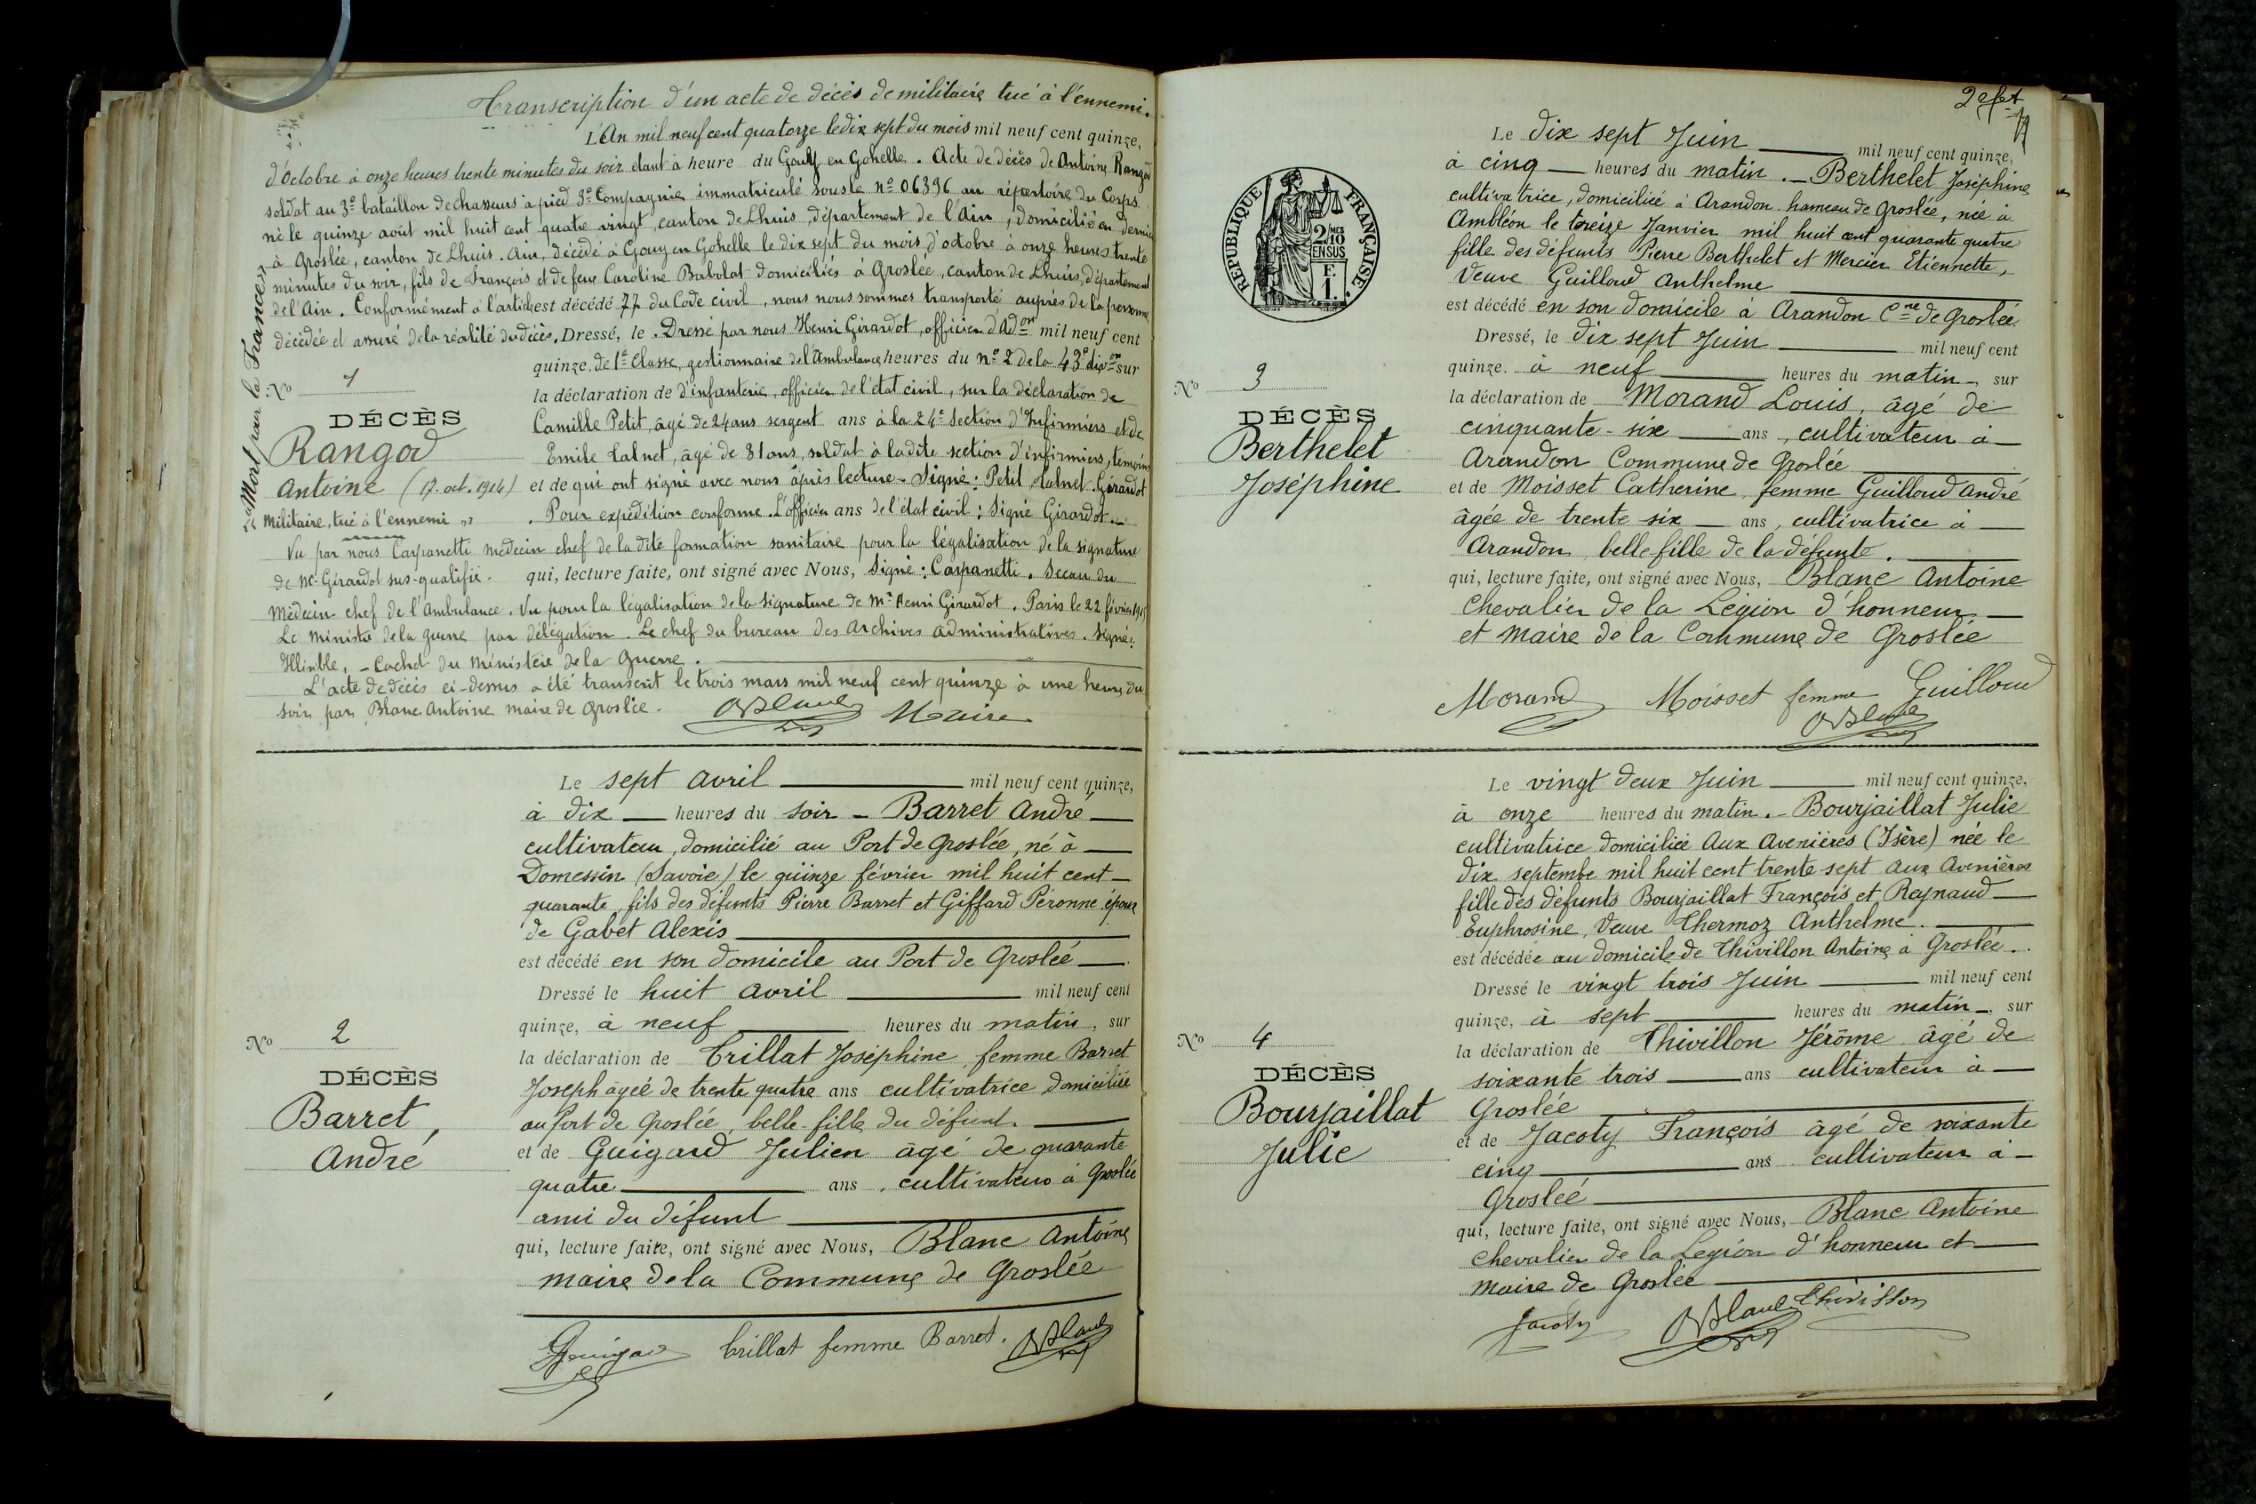 Transcription d'un acte de décès de militaire tué à l'ennemi.
L'An mil neuf cent quatorze le dix sept du mois mil neuf cent quinze,
d'Octobre à onze heures trente minutes du soir étant à heure du Gouy en Gohelle. Acte de décès de Antoine Rangod
soldat au 3e bataillon de chasseurs à pied 3e Compagnie immatriculé sous le no 06396 au répertoire du Corps
né le quinze août mil huit cent quatre vingt, canton de Lhuis, département de l'Ain, domicilié en dernier
à Groslée, canton de Lhuis. Ain, décédé à Gouy en Gohelle le dix sept du mois d'octobre à onze heures trente
minutes du soir, fils de François et de feue Caroline Babolat domiciliés à Groslée, canton de Lhuis, département
de l'Ain. Conformément à l'article est décédé 77 du Code civil, nous nous sommes transporté auprès de la personne
décédée et assuré de la réalité du décès. Dressé, le. Dressé par nous Henri Girardot, officier d'Adon mil neuf cent
quinze. de 1e Classe, gestionnaire de l'Ambulance heures du no 2 de la 43e divon sur
la déclaration de d'infanterie, officier de l'état civil, sur la déclaration de
Camille Petit, âgé de 24 ans sergent ans à la 24e Section d'Infirmiers et de
Emile Talnet, âgé de 31 ans, soldat à ladite section d'infirmiers, témoins
et de qui ont signé avec nous après lecture - Signé: Petit, Talnet - Girardot
. Pour expédition conforme. L'officier ans de l'état civil: Signé Girardot.
Vu par nous Carpanetti médecin chef de la dite formation sanitaire pour la légalisation de la signature
de Mr Girardot sus-qualifié. qui, lecture faite, ont signé avec Nous, Signé: Carpanetti. Sceau du
Médecin chef de l'Ambulance. Vu pour la légalisation de la signature de Mr Henri Girardot. Paris le 22 février 1915
Le Ministre de la guerre par délégation. Le chef du bureau des Archives administratives. Signé:
- Cachet du Ministère de la Guerre.
L'acte de décès ci-dessus a été transcrit le trois mars mil neuf cent quinze à une heure du
soir par Blanc Antoine maire de Groslée.
ABlanc Maire
"Mort pour la France"
No 1
DÉCÈS
Rangod
Antoine (17. oct. 1914)
Militaire, tué à l'ennemi "
Le sept avril mil neuf cent quinze,
à dix heures du soir - Barret André
cultivateur, domicilié au Port de Groslée, né à
Domessin (Savoie) le quinze février mil huit cent
quarante, fils des défunts Pierre Barret et Giffard Péronne époux
de Gabet Alexis
est décédé en son domicile au Port de Groslée
Dressé le huit avril mil neuf cent
quinze, à neuf heures du matin, sur
la déclaration de Trillat Joséphine femme Barret
Joseph âgée de trente quatre ans cultivatrice domiciliée
au Port de Groslée, belle-fille du défunt.
et de Guigard Julien âgé de quarante
quatre ans, cultivateur à Groslée
ami du défunt
qui, lecture faite, ont signé avec Nous, Blanc Antoine
maire de la Commune de Groslée
Guigard Trillat femme Barret. ABlanc
No 2
DÉCÈS
Barret,
André
2e fet
REPUBLIQUE FRANÇAISE.
2/10 MES
EN SUS
F.
1.
Le dix sept Juin mil neuf cent quinze,
à cinq heures du matin. - Berthelet Joséphine
cultivatrice, domiciliée à Arandon hameau de Groslée, née à
Ambléon le treize Janvier mil huit cent quarante quatre
fille des défunts Pierre Berthelet et Mercier Etiennette,
Veuve Guilloud Anthelme
est décédé en son domicile à Arandon Cne de Groslée
Dressé, le dix sept Juin mil neuf cent
quinze. à neuf heures du matin, sur
la déclaration de Morand Louis, âgé de
cinquante-six ans, cultivateur à
Arandon Commune de Groslée
et de Moisset Catherine femme Guilloud André
âgée de trente six ans, cultivatrice à
Arandon belle fille de la défunte.
qui, lecture faite, ont signé avec Nous, Blanc Antoine
Chevalier de la Légion d'honneur
et Maire de la Commune de Groslée
Morand Moisset femme Guilloud
ABlanc
No 3
DÉCÈS
Berthelet
Joséphine
Le vingt deux Juin mil neuf cent quinze,
à onze heures du matin. - Bourjaillat Julie
cultivatrice domiciliée Aux Avenières (Isère) née le
dix septembre mil huit cent trente sept aux Avenières
fille des défunts Bourjaillat François et Reynaud
Euphrosine, Veuve Thermoz Anthelme.
est décédée au domicile de Thivillon Antoine à Groslée.
Dressé le vingt trois Juin mil neuf cent
quinze, à sept heures du matin, sur
la déclaration de Thivillon Jérôme âgé de
soixante trois ans cultivateur à
Groslée
et de Jacoty François âgé de soixante
cinq ans cultivateur à
Groslée
qui, lecture faite, ont signé avec Nous, Blanc Antoine
Chevalier de la Légion d'honneur et
Maire de Groslée
Jacoty ABlanc Thivillon
No 4
DÉCÈS
Bourjaillat
Julie